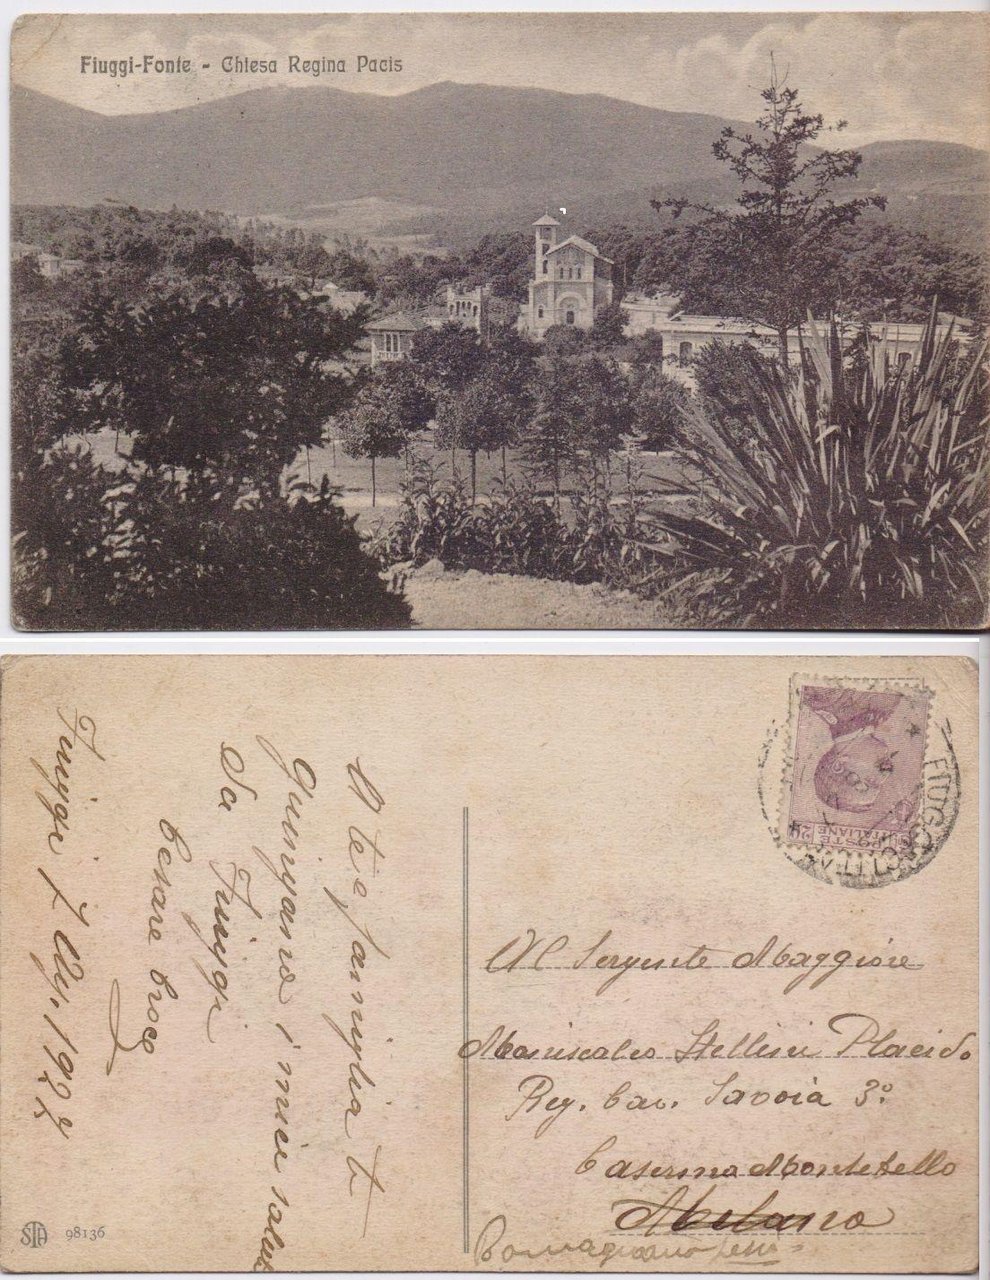 Fiuggi-Fonte - Chiesa Regina Pacis
A te e famiglia ti
giungano i miei saluti
Da Fiuggi
Cesare Croce
Fiuggi 7 1927
POSTE ITALIANE
20
FIUGGI CITTA
Al Sergente Maggiore
Maniscalco Stellini Placido
Reg. Cav. Savoia 3º
Caserma Montebello
Milano
Romagnano Sesia
STA 98136